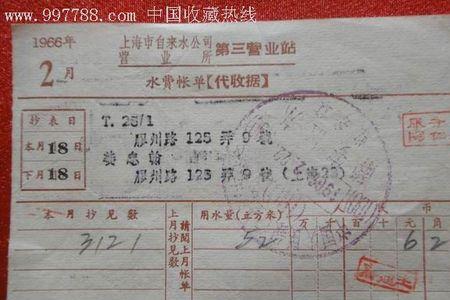 www.997788.com 中国收藏热线
1966年
2月
上海市自来水公司
营业所
第三营业站
水费帐单【代收据】
抄表日
本月18日
下月18日
T. 25/1
胶州路 125 弄 9 號
胶州路 125 弄 9 號 (上海23)
本月抄见数
上月抄见数
请阅上月帐单
用水量(立方米)
币
万千百十元角
3121
52
62